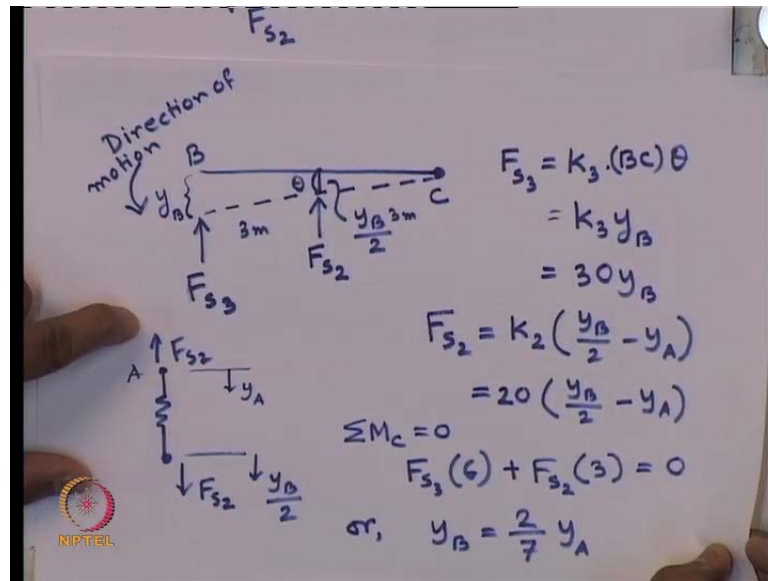 F_S2
Direction of
motion
B
θ
C
y_B
3m
y_B/2
3m
F_S3
F_S2
F_S3 = K_3 · (BC) θ
= K_3 y_B
= 30 y_B
F_S2 = K_2 (y_B/2 - y_A)
= 20 (y_B/2 - y_A)
A
F_S2
y_A
F_S2
y_B/2
ΣM_C = 0
F_S3 (6) + F_S2 (3) = 0
or, y_B = 2/7 y_A
NPTEL